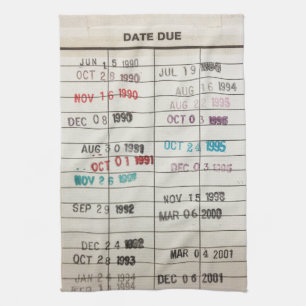 DATE DUE
JUN 15 1990
OCT 28 1990
NOV 16 1990
DEC 08 1990
AUG 30 1981
OCT 01 1991
NOV 26 1991
SEP 29 1992
DEC 24 1992
OCT 28 1993
JAN 24 1994
1994
JUL 19
AUG 16 1994
AUG 22 1995
OCT 03
OCT 24 1995
DEC 03
NOV 15 1998
MAR 06 2000
MAR 03 2001
DEC 06 2001